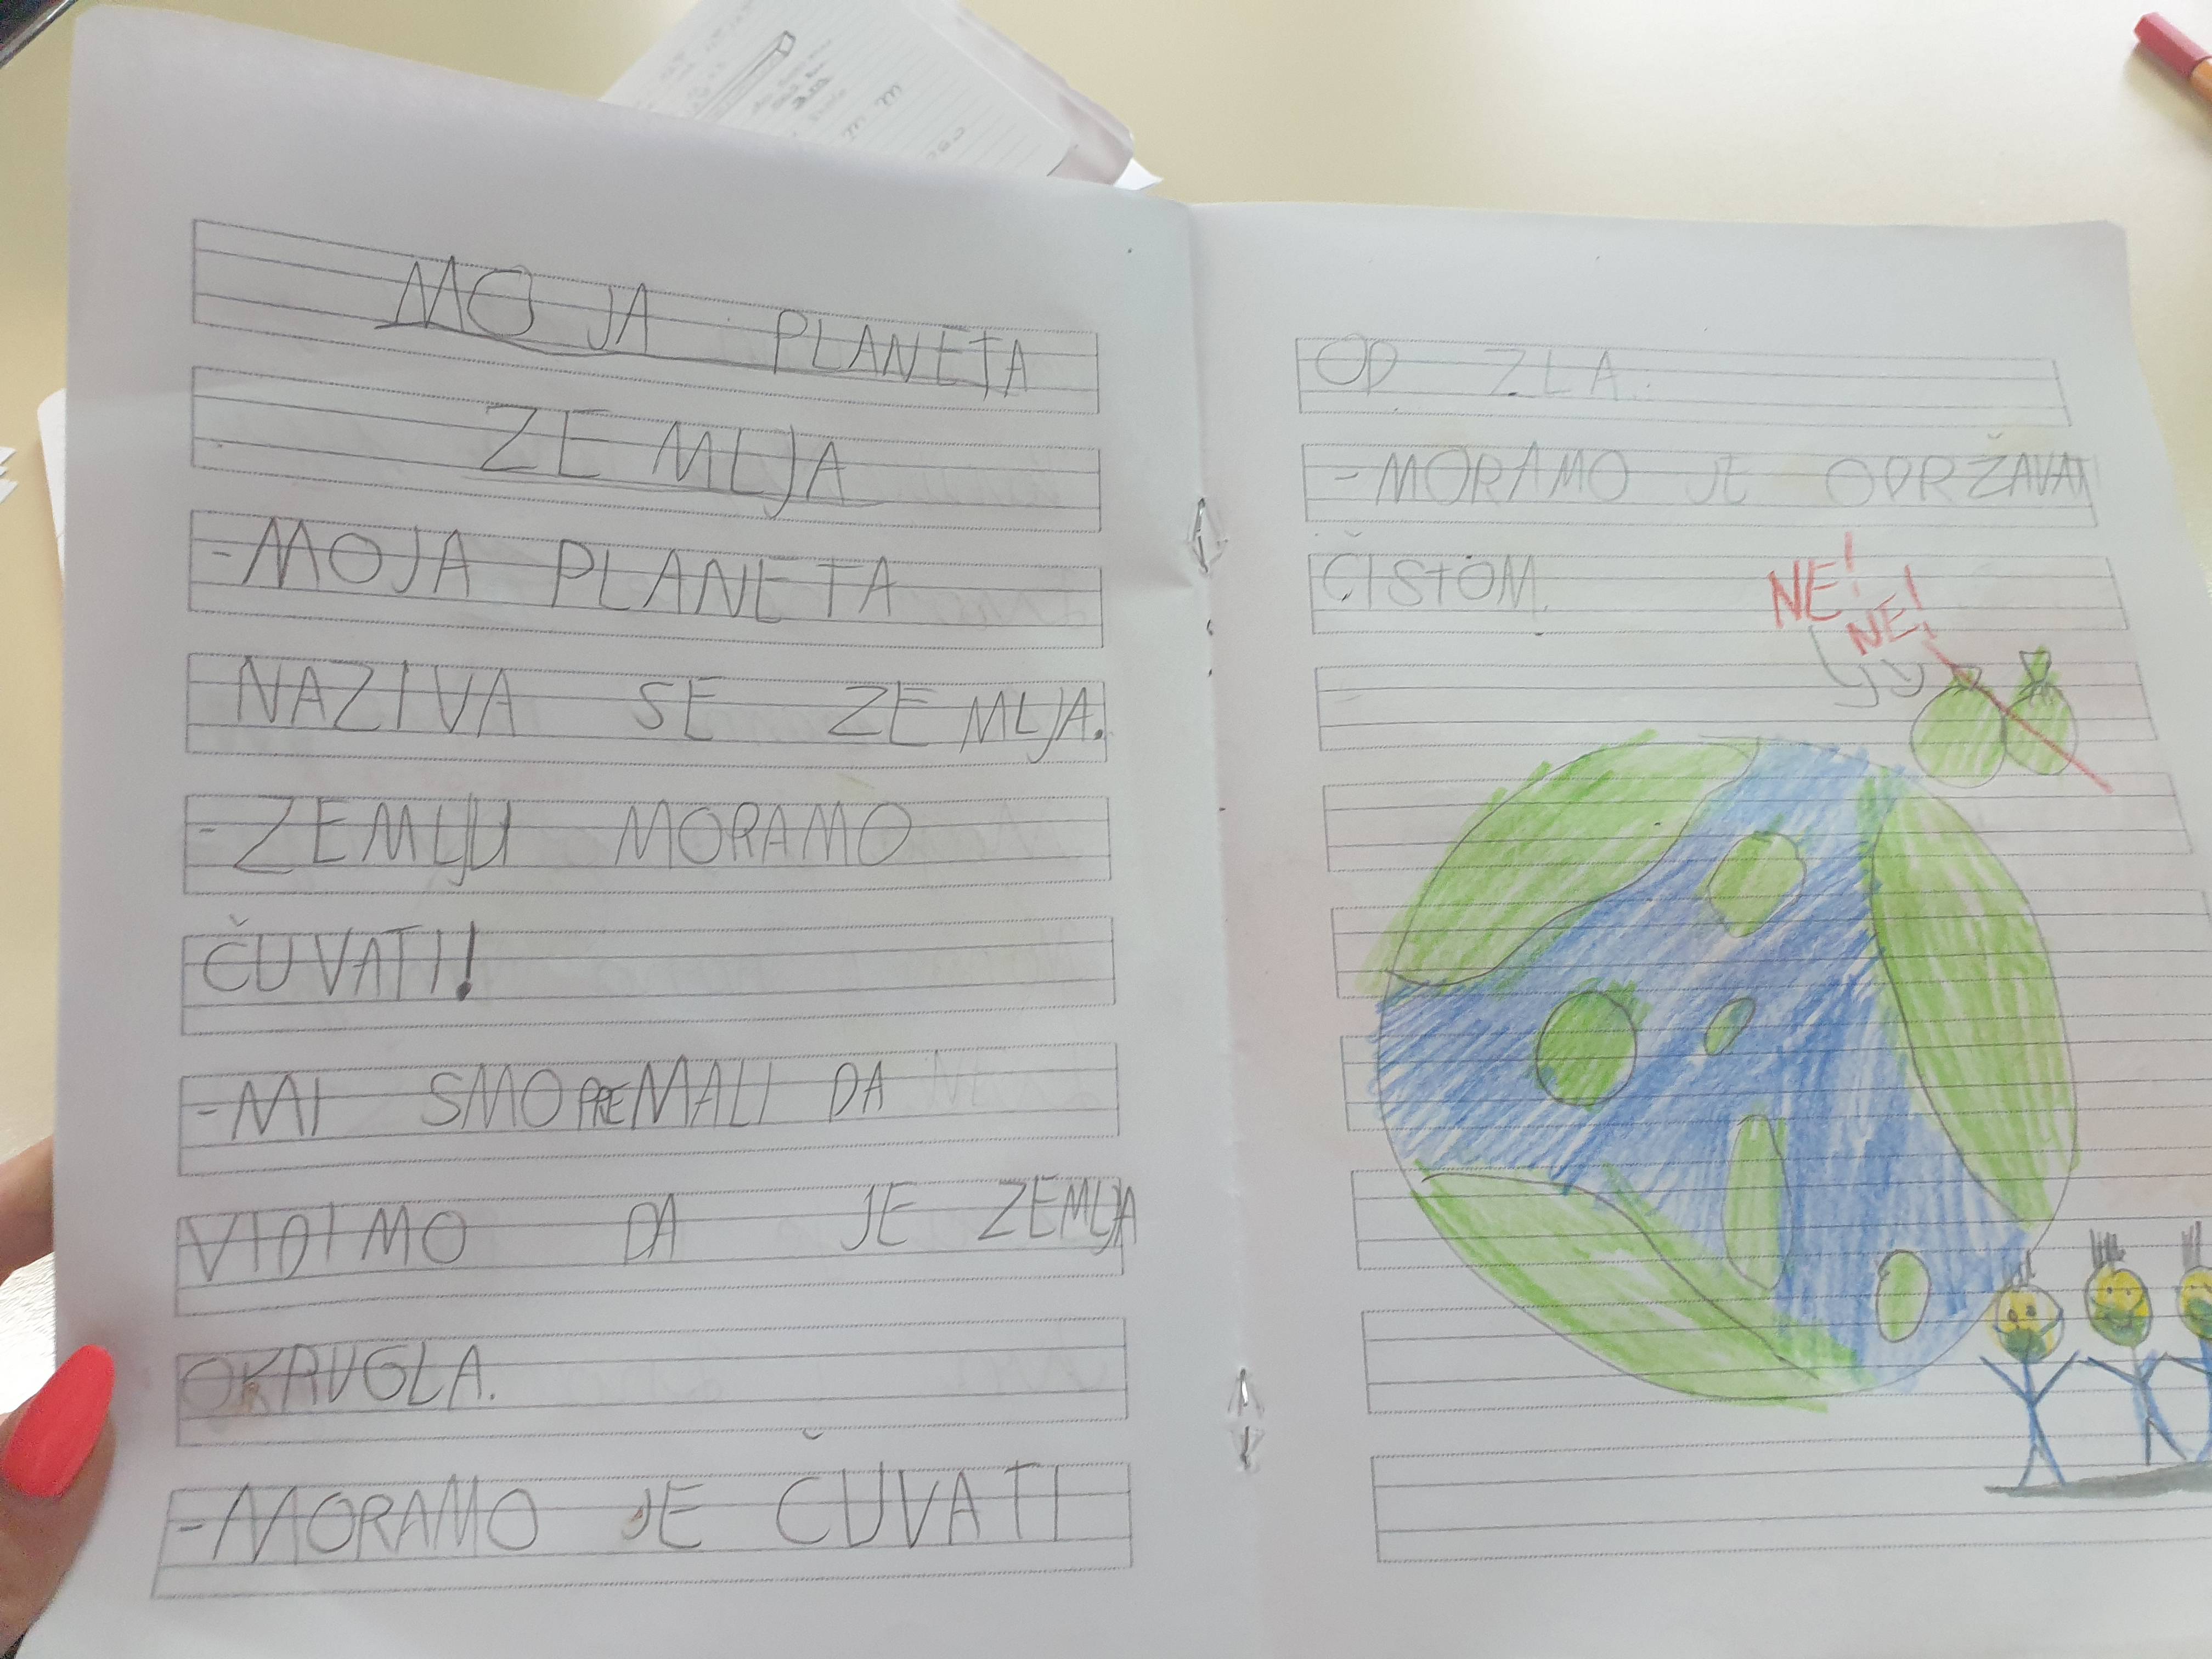 MOJA PLANETA
ZEMLJA
-MOJA PLANETA
NAZIVA SE ZEMLJA.
-ZEMLJU MORAMO
ČUVATI!
-MI SMO PREMALI DA
VIDIMO DA JE ZEMLJA
OKRUGLA.
-MORAMO JE ČUVATI
OD ZLA.
-MORAMO JE ODRŽAVAT
ČISTOM.
NE!
NE!